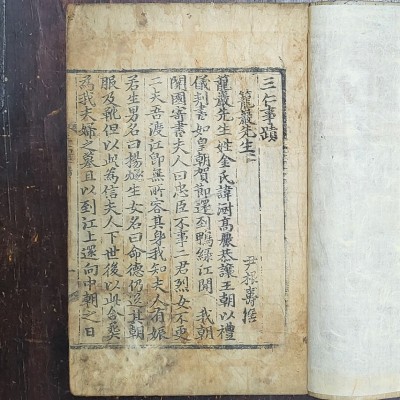 三仁事蹟
籠巖先生
尹根壽撰
籠巖先生姓金氏諱澍高麗恭讓王朝以禮
儀判書如皇朝賀節還到鴨綠江聞我朝
開國寄書夫人曰忠臣不事二君烈女不更
二夫吾渡江卽無所容其身我知夫人有娠
若生男名曰揚燧生女名曰命德仍送其朝
服及靴但以此爲信夫人下世後以此合葬
爲我夫婦之墓且以到江上還向中朝之日